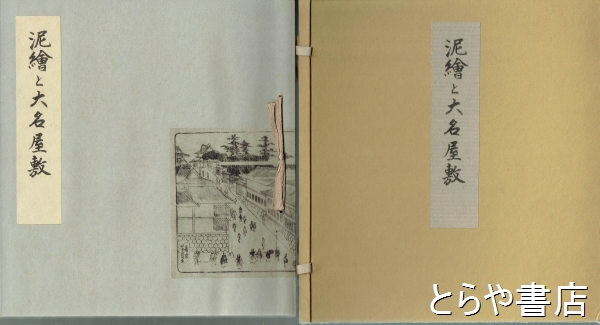 泥繪と大名屋敷
泥繪と大名屋敷
とらや書店